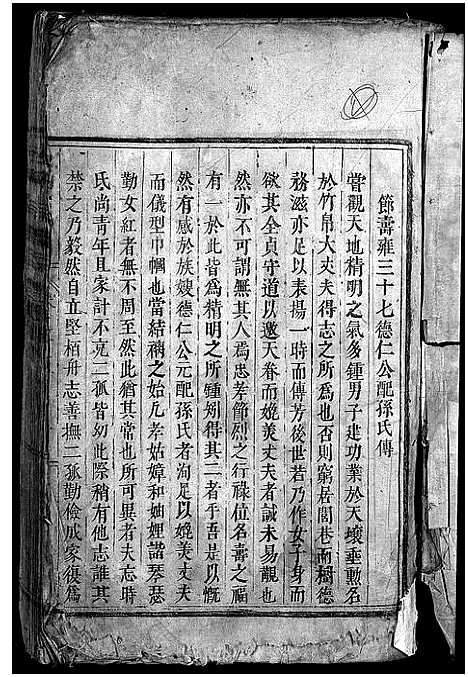 節壽雍三十七德仁公配孫氏傳
嘗觀天地精明之氣多鍾男子建功業於天壤垂勲名
於竹帛大丈夫得志之所為也否則窮居閭巷而樹德
務滋亦足以表揚一時而傳芳後世若乃作女子身而
欲其全貞守道以邀天眷而媲美丈夫者誠未易觀也
然亦不可謂無其人為忠孝節烈之行祿位名壽之福
有一於此皆為精明之所鍾矧得其二者乎吾是以慨
然有感於族嫂德仁公元配孫氏者洵足以媲美丈夫
而儀型巾幗也當結褵之始凢孝姑嫜和妯娌諧琴瑟
勤女紅者無不周至然此猶其常也所可異者夫忘時
氏尚青年且家計不克二孤皆幼此際稍有他志誰其
禁之乃毅然自立堅栢舟志善撫二孤勤儉成家復為